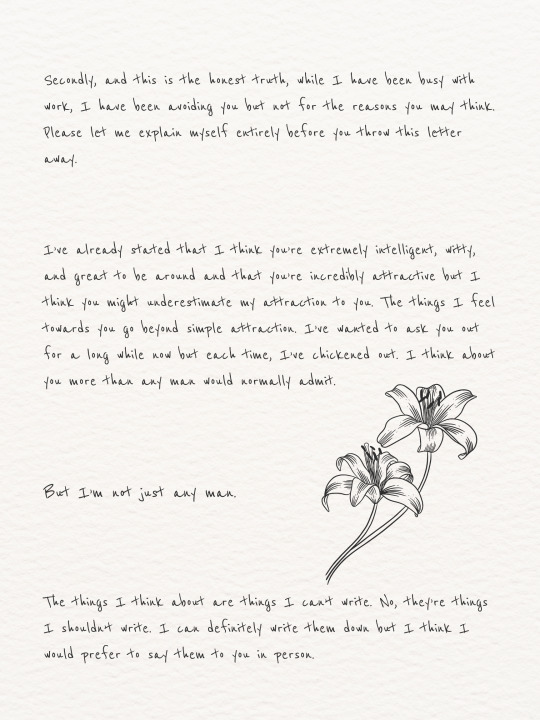 Secondly, and this is the honest truth, while I have been busy with
work, I have been avoiding you but not for the reasons you may think.
Please let me explain myself entirely before you throw this letter
away.
I've already stated that I think you're extremely intelligent, witty,
and great to be around and that you're incredibly attractive but I
think you might underestimate my attraction to you. The things I feel
towards you go beyond simple attraction. I've wanted to ask you out
for a long while now but each time, I've chickened out. I think about
you more than any man would normally admit.
But I'm not just any man.
The things I think about are things I can't write. No, they're things
I shouldn't write. I can definitely write them down but I think I
would prefer to say them to you in person.